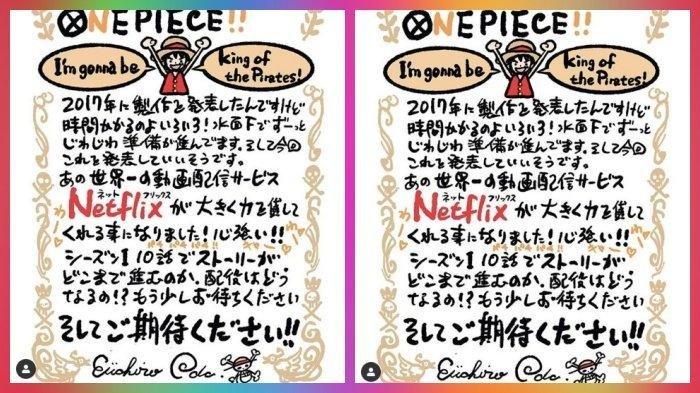 ONE PIECE!!
I'm gonna be
King of
the Pirates!
2017年に製作を発表したんですけど
時間かかるのよいろいろ!水面下でずーっと
じわじわ準備が進んでます。そして今回
これを発表していいそうです。
あの世界一の動画配信サービス
ネットフリックス
Netflixが大きく力を貸して
くれる事になりました!心強い!!
シーズン1 10話でストーリーが
どこまで進むのか、配信はどう
なるの!?もう少しお待ちください
そしてご期待ください!!
Eiichiro Oda.
ONE PIECE!!
I'm gonna be
King of
the Pirates!
2017年に製作を発表したんですけど
時間かかるのよいろいろ!水面下でずーっと
じわじわ準備が進んでます。そして今回
これを発表していいそうです。
あの世界一の動画配信サービス
ネットフリックス
Netflixが大きく力を貸して
くれる事になりました!心強い!!
シーズン1 10話でストーリーが
どこまで進むのか、配信はどう
なるの!?もう少しお待ちください
そしてご期待ください!!
Eiichiro Oda.